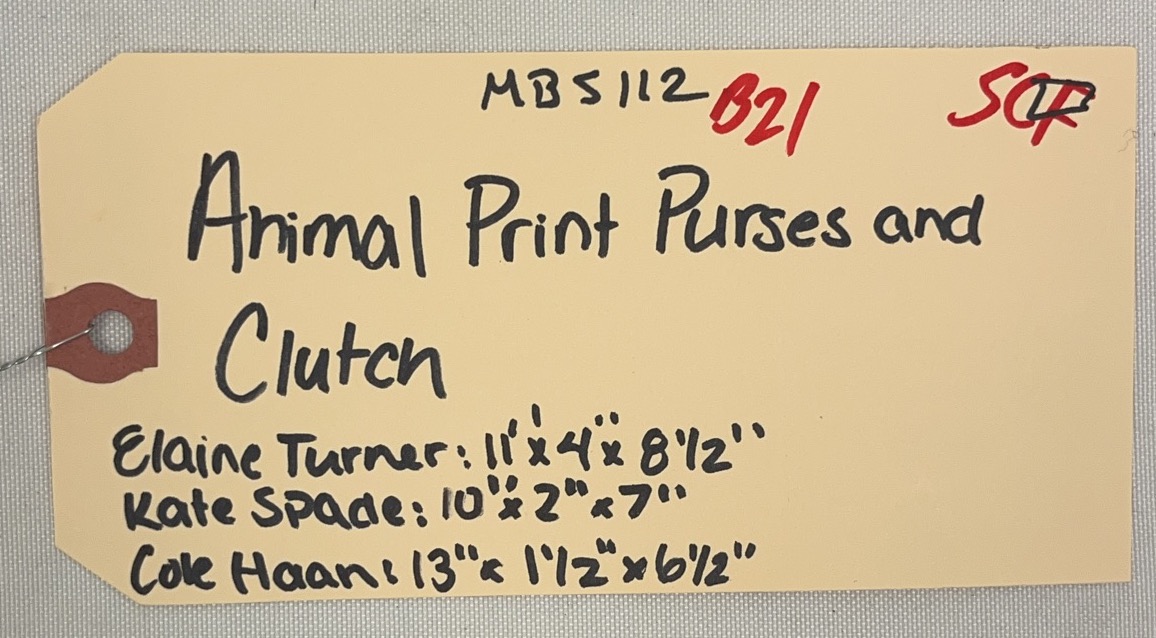 MBS112 B21 SCF
Animal Print Purses and
Clutch
Elaine Turner: 11" x 4" x 8 1/2"
Kate Spade: 10" x 2" x 7"
Cole Haan: 13" x 1 1/2" x 6 1/2"